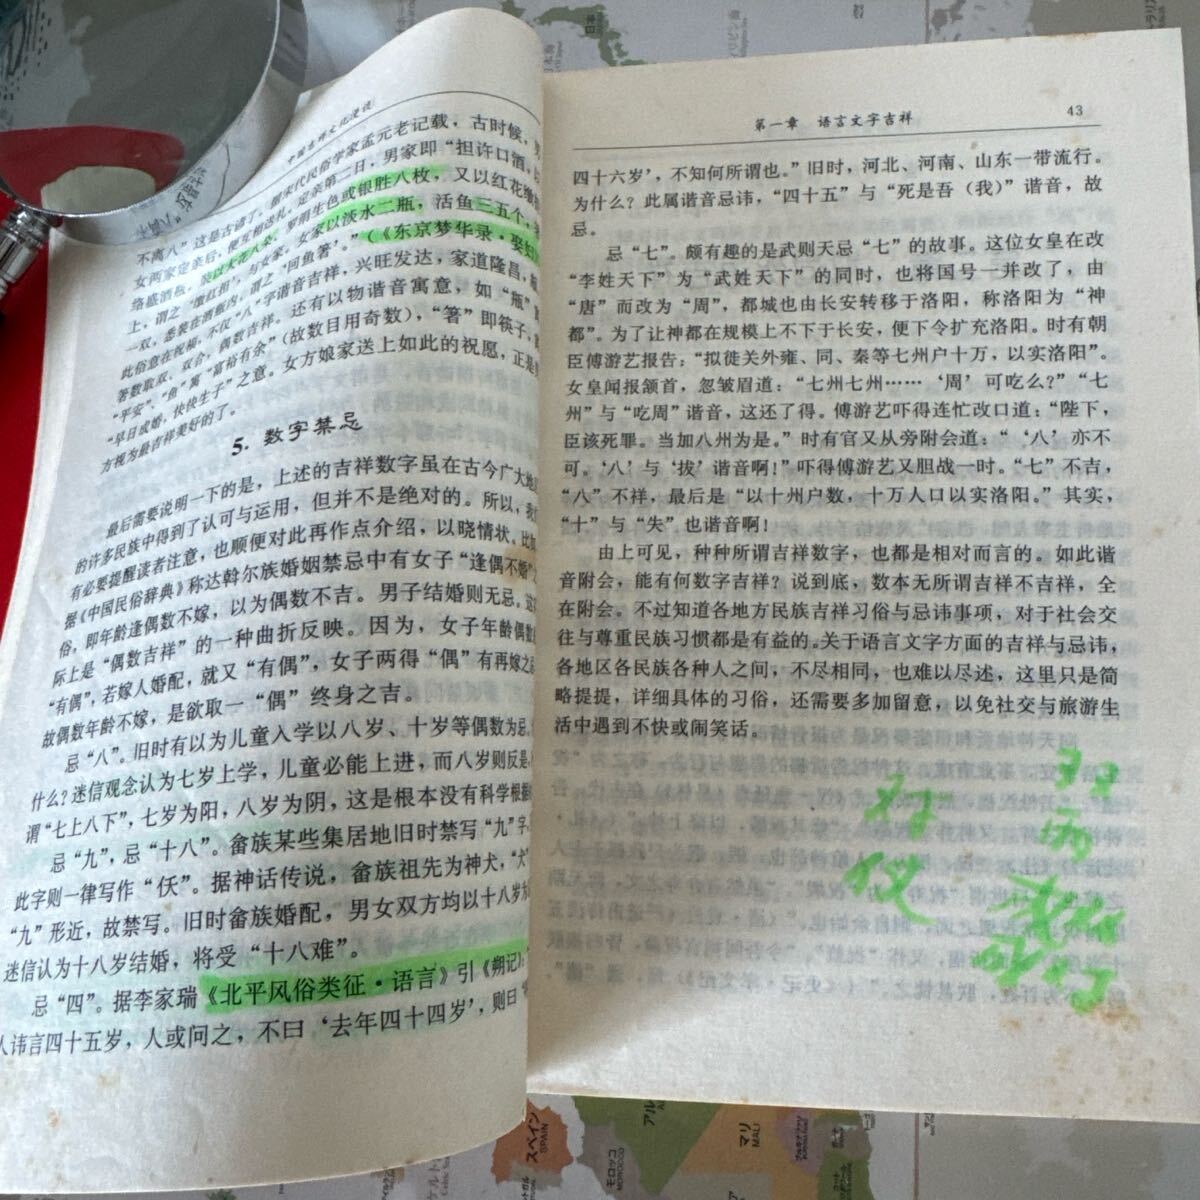 中国吉祥文化漫谈
不离八”这是古谚了。据宋代民俗学家孟元老记载，古时候，男
女两家定亲后，便互相送礼。定亲第二日，男家即“担许口酒，以
络盛酒瓶，装以大花八朵、罗绢生色或银胜八枚，又以花红缴
上，谓之‘缴红担’，与女家。女家以淡水二瓶，活鱼三五个，
一双，悉装在酒瓶内，谓之‘回鱼箸’。”（《东京梦华录·娶妇
此俗意在祝福，不仅“八”字谐音吉祥，兴旺发达，家道隆昌，
箸数取双，双合，偶数吉祥。还有以物谐音寓意，如“瓶”
“平安”、“鱼”寓“富裕有余”（故数目用奇数），“箸”即筷子，
“早日成婚，快快生子”之意。女方娘家送上如此的祝愿，正是
方视为最吉祥美好的了。
5. 数字禁忌
最后需要说明一下的是，上述的吉祥数字虽在古今广大地
的许多民族中得到了认可与运用，但并不是绝对的。所以，我
有必要提醒读者注意，也顺便对此再作点介绍，以晓情状。比如
据《中国民俗辞典》称达斡尔族婚姻禁忌中有女子“逢偶不婚”
俗，即年龄逢偶数不嫁，以为偶数不吉。男子结婚则无忌。这
际上是“偶数吉祥”的一种曲折反映。因为，女子年龄偶数
“有偶”，若嫁人婚配，就又“有偶”，女子两得“偶”有再嫁之
故偶数年龄不嫁，是欲取一“偶”终身之吉。
忌“八”。旧时有以为儿童入学以八岁、十岁等偶数为忌。
什么？迷信观念认为七岁上学，儿童必能上进，而八岁则反是
谓“七上八下”，七岁为阳，八岁为阴，这是根本没有科学根据
忌“九”，忌“十八”。畲族某些集居地旧时禁写“九”字，
此字则一律写作“仸”。据神话传说，畲族祖先为神犬，“犬”
“九”形近，故禁写。旧时畲族婚配，男女双方均以十八岁为
迷信认为十八岁结婚，将受“十八难”。
忌“四”。据李家瑞《北平风俗类征·语言》引《朔记》：
人讳言四十五岁，人或问之，不曰‘去年四十四岁’，则曰
第一章 语言文字吉祥 43
四十六岁’，不知何所谓也。”旧时，河北、河南、山东一带流行。
为什么？此属谐音忌讳，“四十五”与“死是吾（我）”谐音，故
忌。
忌“七”。颇有趣的是武则天忌“七”的故事。这位女皇在改
“李姓天下”为“武姓天下”的同时，也将国号一并改了，由
“唐”而改为“周”，都城也由长安转移于洛阳，称洛阳为“神
都”。为了让神都在规模上不下于长安，便下令扩充洛阳。时有朝
臣傅游艺报告：“拟徙关外雍、同、秦等七州户十万，以实洛阳”。
女皇闻报颔首，忽皱眉道：“七州七州……‘周’可吃么？”“七
州”与“吃周”谐音，这还了得。傅游艺吓得连忙改口道：“陛下，
臣该死罪。当加八州为是。”时有官又从旁附会道：“‘八’亦不
可。‘八’与‘拔’谐音啊！”吓得傅游艺又胆战一时。“七”不吉，
“八”不祥，最后是“以十州户数，十万人口以实洛阳。”其实，
“十”与“失”也谐音啊！
由上可见，种种所谓吉祥数字，也都是相对而言的。如此谐
音附会，能有何数字吉祥？说到底，数本无所谓吉祥不吉祥，全
在附会。不过知道各地方民族吉祥习俗与忌讳事项，对于社会交
往与尊重民族习惯都是有益的。关于语言文字方面的吉祥与忌讳，
各地区各民族各种人之间，不尽相同，也难以尽述，这里只是简
略提提，详细具体的习俗，还需要多加留意，以免社交与旅游生
活中遇到不快或闹笑话。
スペイン
SPAIN
モロッコ
MOROCCO
マリ
MALI